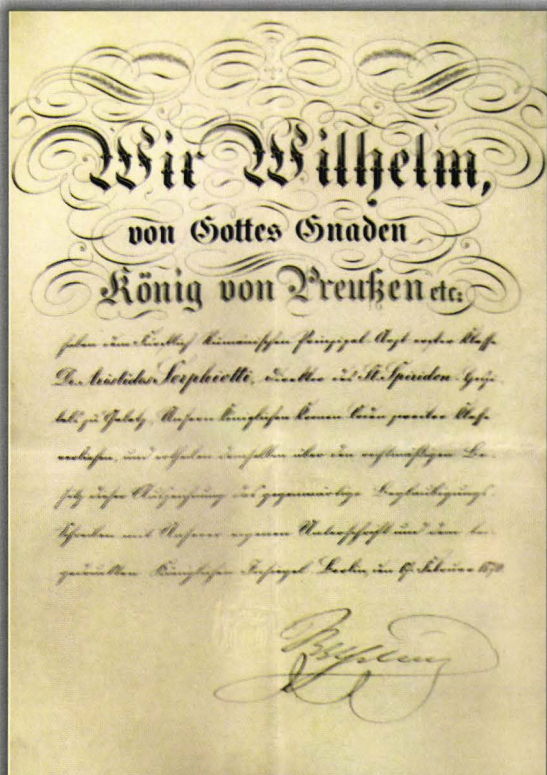 Wir Wilhelm,
von Gottes Gnaden
König von Preußen etc:
haben dem Fürstlich Rumänischen Prinzipal Arzt erster Klasse
Dr. Aristides Serphiotti, Direktor des St. Spiridon-Hospi-
tals zu Galatz, Unsern Königlichen Kronen Orden zweiter Klasse
verliehen, und ertheilen demselben über den rechtmäßigen Be-
sitz dieser Auszeichnung das gegenwärtige Beglaubigungs-
schreiben mit Unserer eigenen Unterschrift und dem bei-
gedruckten Königlichen Insiegel. Berlin, den Februar
Wilhelm